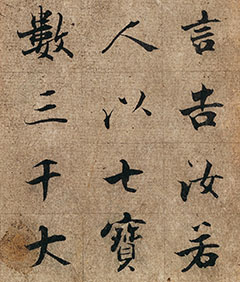 言吉汝若
人以七寶
數三千大